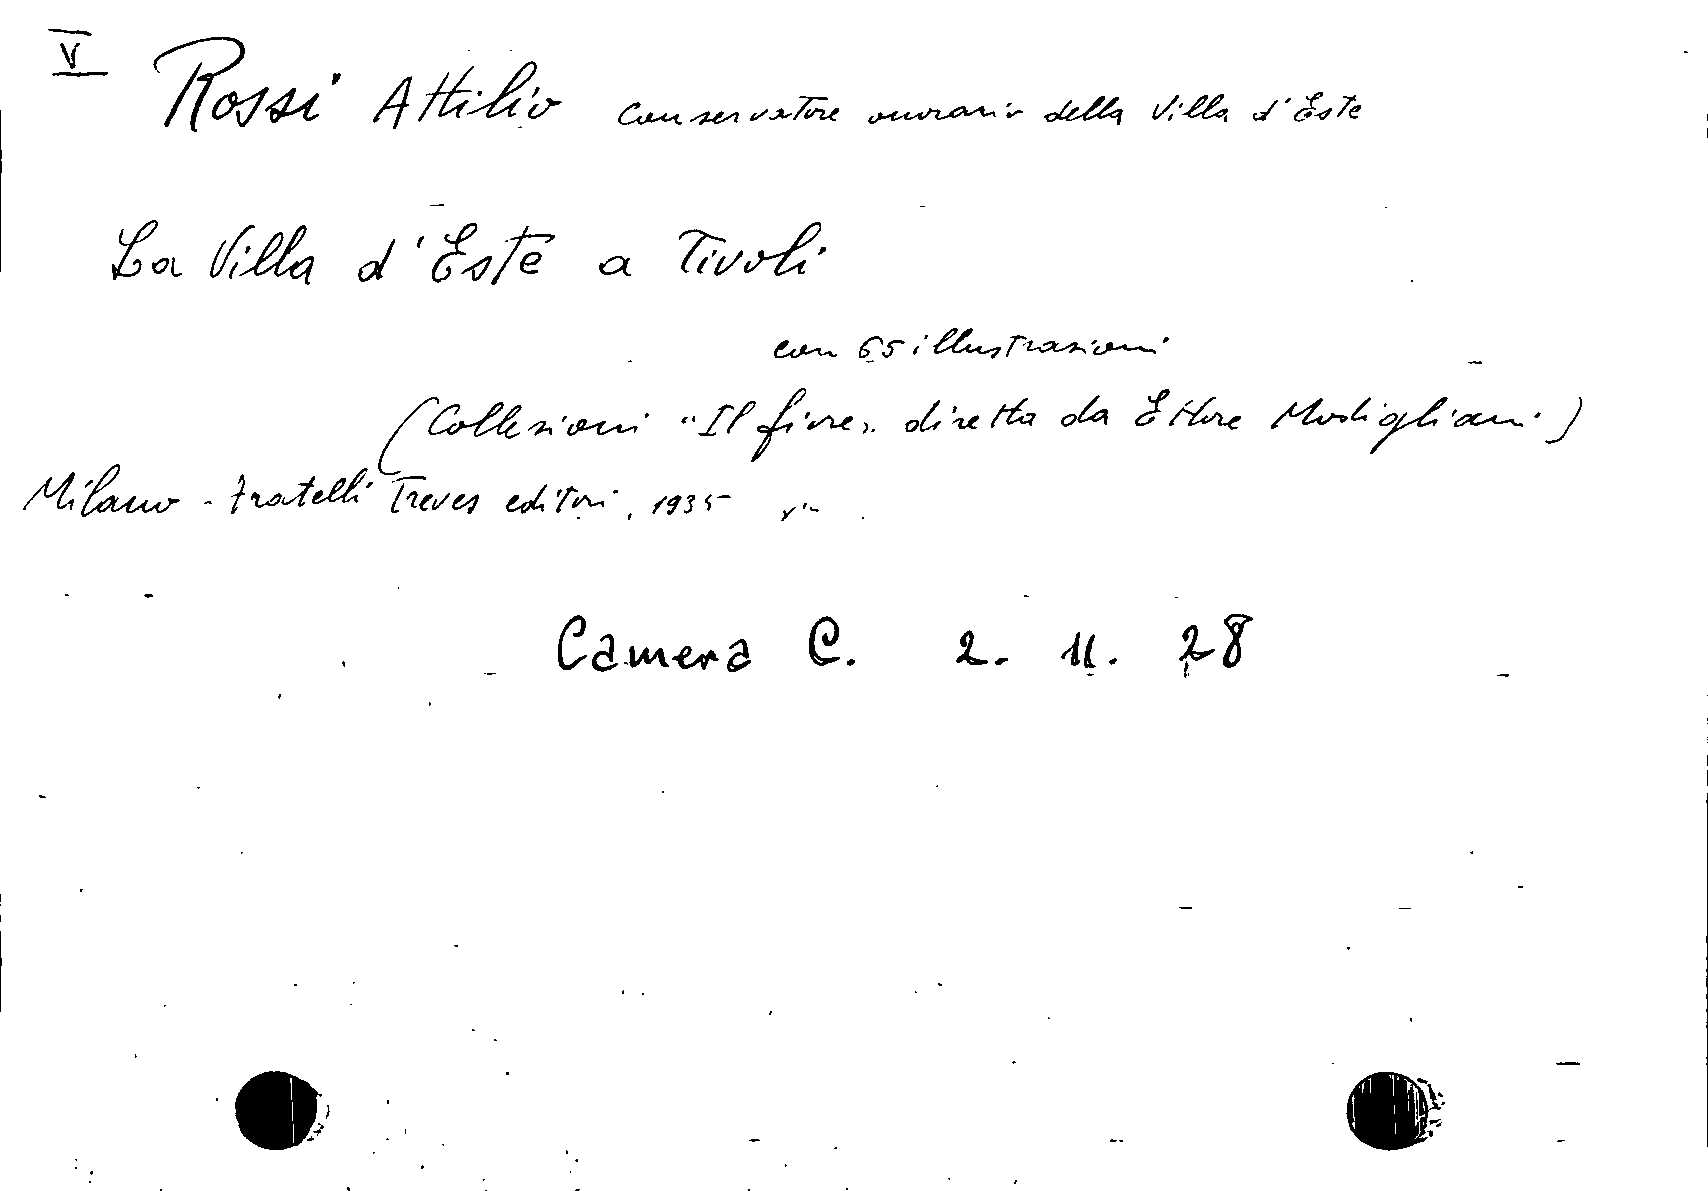 V
Rossi Attilio conservatore onorario della Villa d'Este
La Villa d'Este a Tivoli
con 65 illustrazioni
(Collezioni "Il fiore" diretta da Ettore Modigliani)
Milano - Fratelli Treves editori, 1935
Camera C. 2. 11. 28